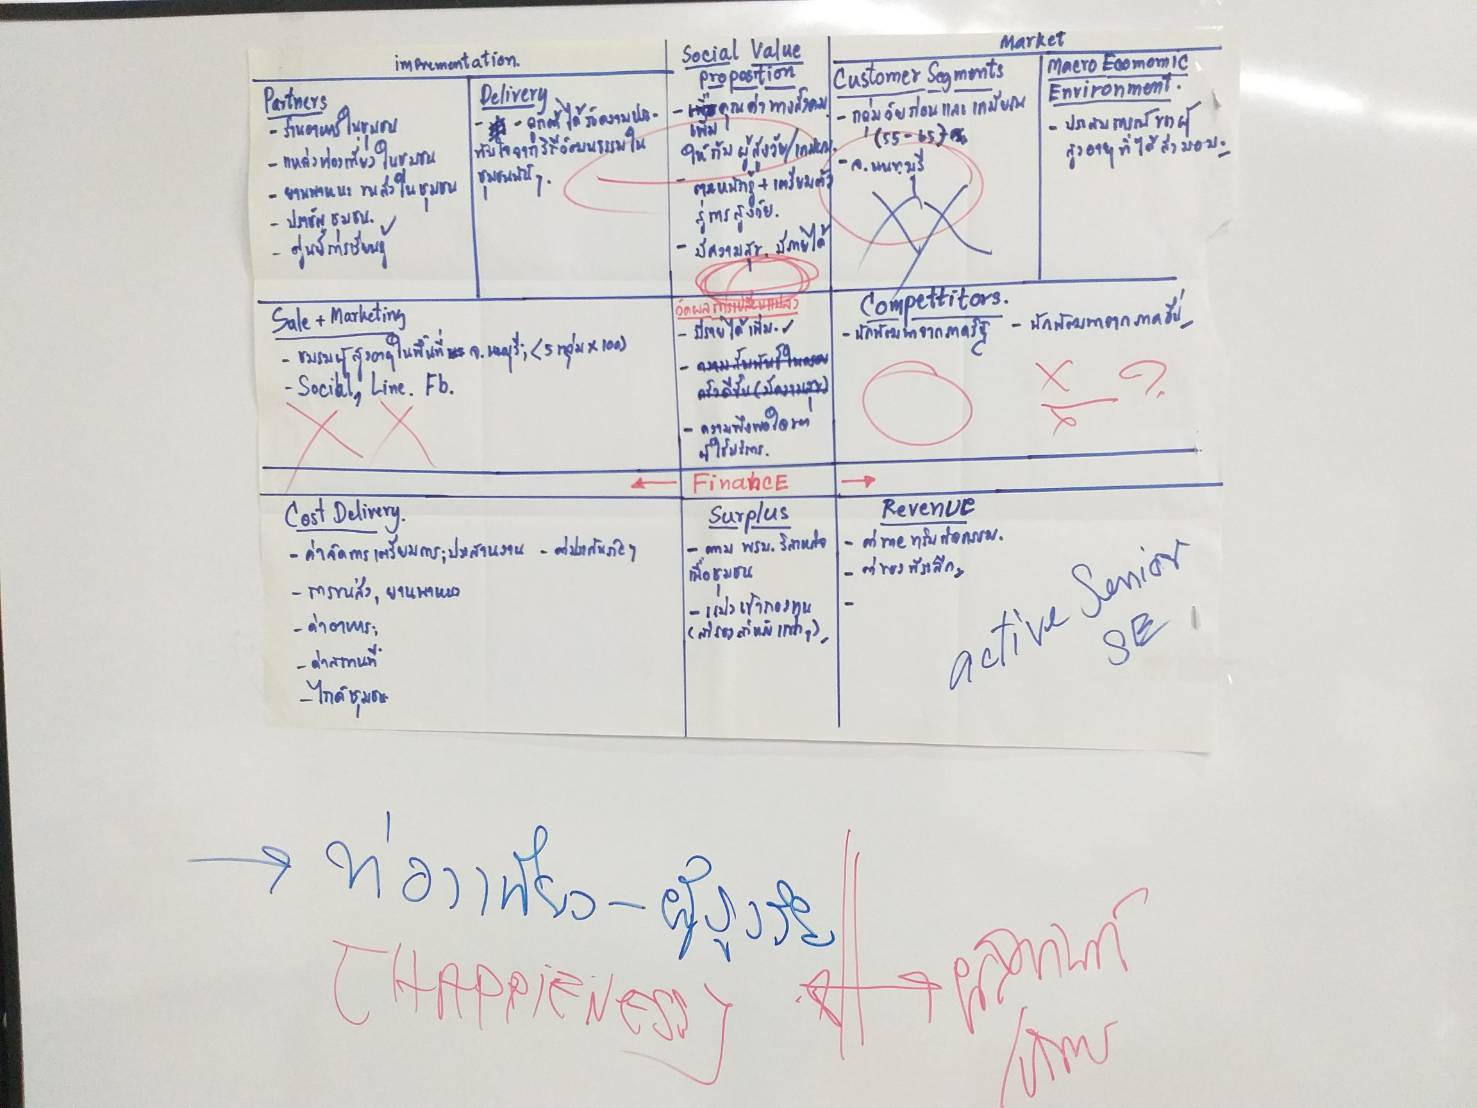 imprementation.
Social Value
Proposition
Market
Partners
- ร้านอาหารในชุมชน
- แหล่งท่องเที่ยวในชุมชน
- ยานพาหนะ ขนส่งในชุมชน
- ปราชญ์ชุมชน.
- ศูนย์การเรียนรู้
Delivery
- ลูกค้าได้รับความประ-
ทับใจจากวิถีวัฒนธรรมใน
ชุมชน
คุณค่าทางสังคม
เพิ่ม
ให้กับ ผู้สูงวัย/เกษียณ.
- ตระหนักรู้ + เตรียมตัว
สู่การสูงวัย.
- มีความสุข, มีรายได้
Customer Segments
- กลุ่มวัยก่อนและเกษียณ
(55-65)
- จ.นนทบุรี
Macro Ecomomic
Environment.
- ประสบการณ์ของผู้
สูงอายุที่ได้ส่งมอบ.
Sale + Marketing
- ชมรมผู้สูงอายุในพื้นที่ จ.นนทบุรี; (5 กลุ่ม x 100)
- Social, Line. Fb.
วัดผลการเปลี่ยนแปลง
- มีรายได้เพิ่ม.
- ความสัมพันธ์ในครอบ
ครัวดีขึ้น (มีความสุข)
- ความพึงพอใจต่อ
ผู้ใช้บริการ.
Compettitors.
- นักพัฒนาจากภาครัฐ
- นักพัฒนาจากภาคอื่นๆ
X
X ?
← Finance →
Cost Delivery.
- ค่าจัดการเตรียมการ; ประสานงาน
- ค่าประกันภัยๆ
- การขนส่ง, ยานพาหนะ
- ค่าอาหาร;
- ค่าสถานที่
- ไกด์ชุมชน
Surplus
- ตาม พรบ. วิสาหกิจ
เพื่อชุมชน
- แบ่งเข้ากองทุน
Revenue
- ค่าขายทริปกิจกรรม.
- ค่าของที่ระลึก,
-
active Senior
SE
→ ท่องเที่ยว - ผู้สูงวัย
(HAPPIENESS)